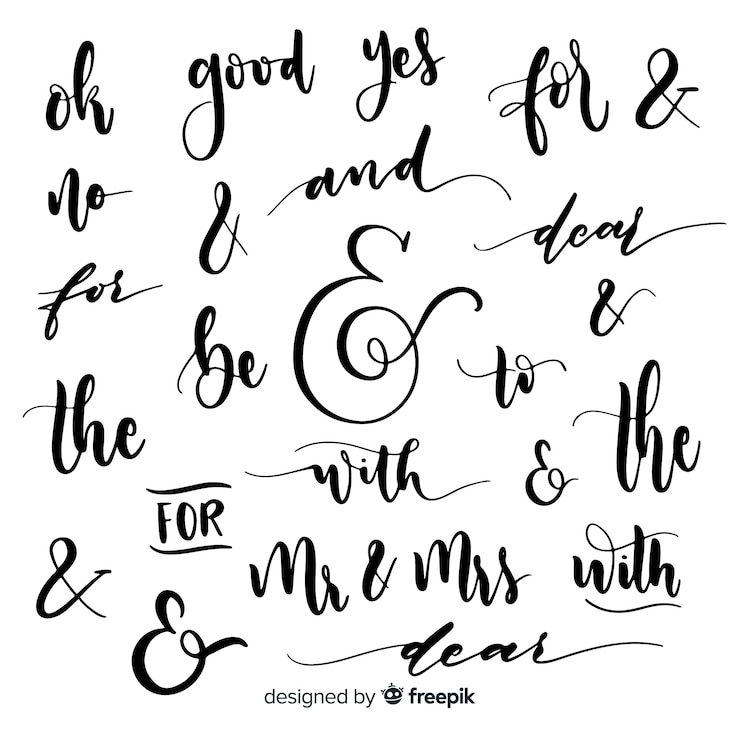 ok good yes for &
no & and dear
for be & to &
the with & the
FOR
& Mr & Mrs with
& dear
designed by freepik